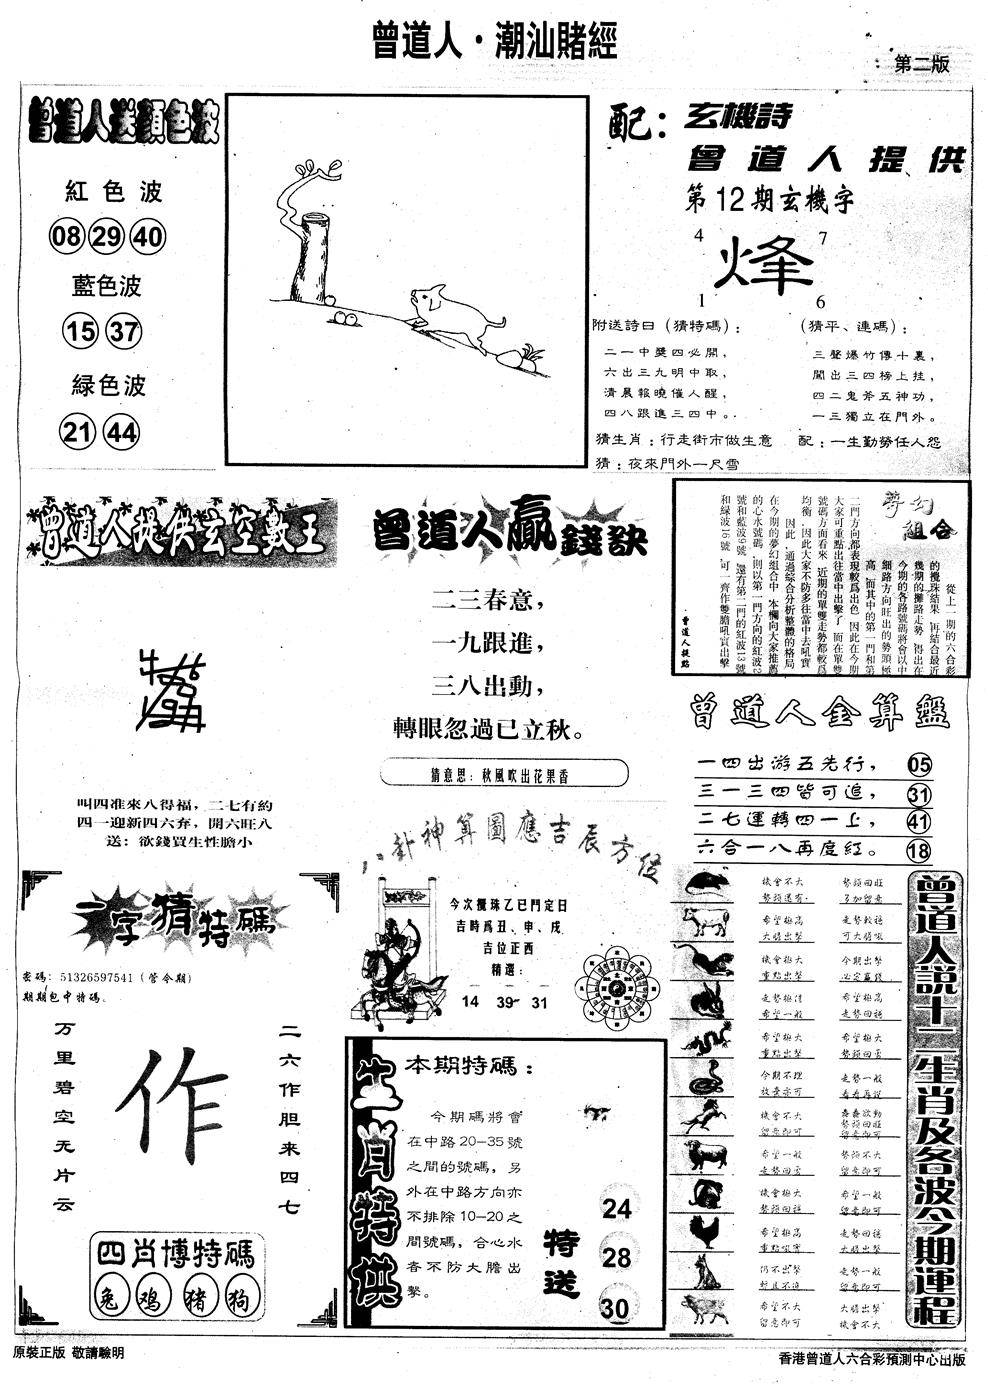 曾道人·潮汕賭經
第二版
曾道人送顏色波
紅色波
08 29 40
藍色波
15 37
緑色波
21 44
配：玄機詩
曾道人提供
第12期玄機字
4 7
烽
1 6
附送詩曰（猜特碼）：
二一中獎四必開，
六出三九明中取，
清晨報曉催人醒，
四八跟進三四中。
（猜平、連碼）：
三聲爆竹傳十裏，
閣出三四榜上挂，
四二鬼斧五神功，
一三獨立在門外。
猜生肖：行走街市做生意 配：一生勤勞任人怨
猜：夜來門外一尺雪
曾道人提供玄空數王
叫四准來八得福，二七有約
四一迎新四六弃，開六旺八
送：欲錢買生性膽小
曾道人贏錢訣
二三春意，
一九跟進，
三八出動，
轉眼忽過已立秋。
猜意思：秋風吹出花果香
夢幻
組合
從上一期的六合彩
的攪珠結果，再結合最近
幾期的攤路走勢，得出在
今期的各路號碼將會以中
細路方向旺出的勢頭極
高，而其中的第一門和第
二門方向都表現較爲出色，因此在今期
大家可重點出往當中出擊了，而在單雙
號碼方面看來，近期的單雙走勢都較爲
均衡，因此大家不防多往當中去吼實
因此，通過綜合分析整體的格局
在今期的夢幻組合中，本欄向大家推薦
的心水號碼，則以第一門方向的紅波12
號和藍波9號，還有第二門的紅波13號
和緑波16號，可一齊作雙膽吼實出擊
曾道人提點
曾道人金算盤
一四出游五先行， 05
三一三四皆可追， 31
二七運轉四一上， 41
六合一八再度紅。 18
八卦神算圖應吉辰方位
今次攪珠乙巳門定日
吉時爲丑、申、戌
吉位正西
精選：
14 39 31
一字猜特碼
密碼：51326597541（管今期）
期期包中特碼
万里碧空无片云
作
二六作胆来四七
四肖博特碼
兔 鸡 猪 狗
生肖特供
本期特碼：
今期碼將會
在中路20-35號
之間的號碼，另
外在中路方向亦
不排除10-20之
間號碼，合心水
者不防大膽出
擊。
特送
24
28
30
曾道人説十二生肖及各波今期運程
機會不大 勢頭回旺
希望極高 走勢較穩
機會極大 今期出擊
重點出擊
希望極高
希望一般 走勢回穩
希望極大 希望極大
重點出擊
今期不理 走勢一般
機會不大
留意即可
希望一般 勢頭不大
留意即可
機會極大 希望一般
勢頭回穩 留意即可
希望極高 走勢回穩
大膽出擊
走勢一般
留意即可
希望不大 大膽出擊
留意即可 機會不大
原裝正版 敬請驗明
香港曾道人六合彩預測中心出版